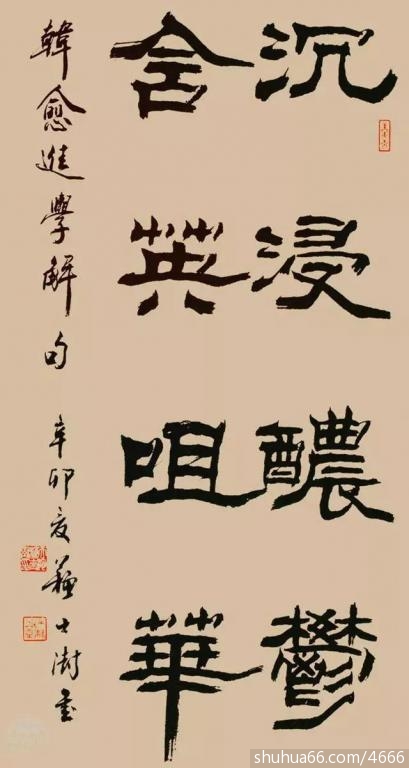 沉浸醲鬱
含英咀華
韓愈進學解句 辛卯夏蘇士澍書
shuhua66.com/4666